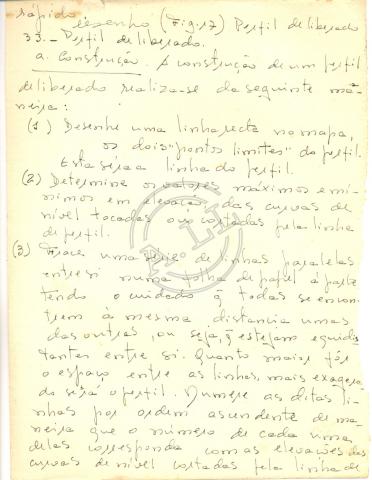 rápido
desenho (Fig. 17) Perfil deliberado
33. - Perfil deliberado.
a. Construção. A construção de um perfil
deliberado realiza-se da seguinte ma-
neira:
(1) Desenhe uma linha recta no mapa,
os dois "pontos limites" do perfil.
Esta será a linha do perfil.
(2) Determine os valores máximos e mí-
nimos em elevação, das curvas de
nível tocadas ou cortadas pela linha
de perfil.
(3) Trace uma série de linhas paralelas
entre si numa folha de papel à parte
tendo o cuidado q̃ todas se encon-
trem à mesma distancia umas
das outras, ou seja, q̃ estejam equidis
tantes entre si. Quanto maior fôr
o espaço entre as linhas, mais exagera
do será o perfil. Numere as ditas li-
nhas por ordem ascendente de ma-
neira que o número de cada uma
delas corresponda com as elevações das
curvas de nível cortadas pela linha de